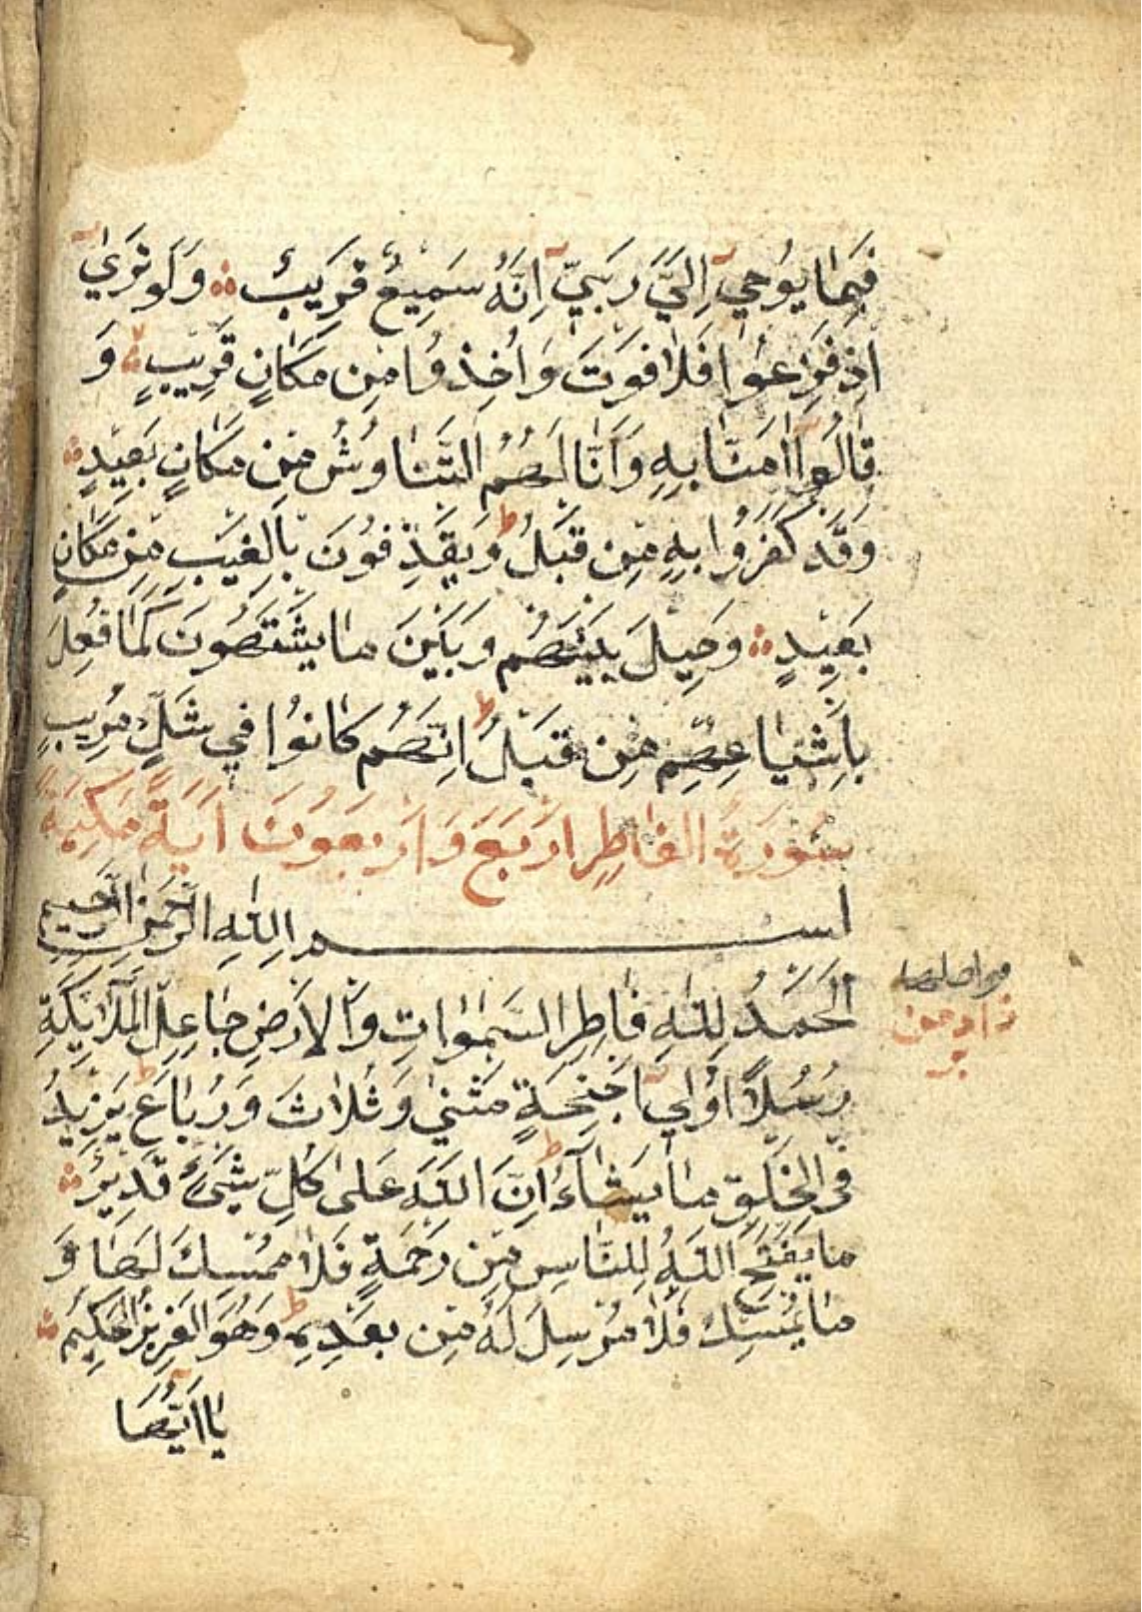 فَبِمَا يُوحِي اِلَيَّ رَبِّيّ اِنَّهُ سَمِيعٌ قَرِيبٌ وَلَو تَرَيٰ
اِذ فَزِعُوا فَلَا فَوتَ وَاُخِذُوا مِن مَكَانٍ قَرِيبٍ وَ
قَالُوا آمَنَّا بِهِ وَاَنّٰا لَهُمُ التَّنَاوُشُ مِن مَكَانٍ بَعِيدٍ
وَقَد كَفَرُوا بِهِ مِن قَبلُ ط وَيَقذِفُونَ بِالغَيبِ مِن مَكَانٍ
بَعِيدٍ وَحِيلَ بَينَهُم وَبَينَ مَا يَشتَهُونَ كَمَا فُعِلَ
بِاَشيَاعِهِم مِن قَبلُ ط اِنَّهُم كَانُوا فِي شَكٍّ مُرِيبٍ
سُورَةُ الفَاطِرِ اَربَعَ وَاَربَعُونَ اَيَةً مَكِيَةً
بسم اللهِ الرَّحمٰنِ الرَّحِيمِ
اَلحَمدُ لِلّٰهِ فَاطِرِ السَّمٰوَاتِ وَالاَرضِ جَاعِلِ المَلَآئِكَةِ
رُسُلًا اُولِي اَجنِحَةٍ مَثنٰي وَثُلَاثَ وَرُبَاعَ ط يَزِيدُ
فِي الخَلقِ مَا يَشَآءُ ط اِنَّ اللهَ عَلٰي كُلِّ شَيءٍ قَدِيرٌ
مَا يَفتَحِ اللهُ لِلنَّاسِ مِن رَحمَةٍ فَلَا مُمسِكَ لَهَا وَ
مَا يُمسِك فَلَا مُرسِلَ لَهُ مِن بَعدِهِ ط وَهُوَ العَزِيزُ الحَكِيمُ
يَااَيُّهَا